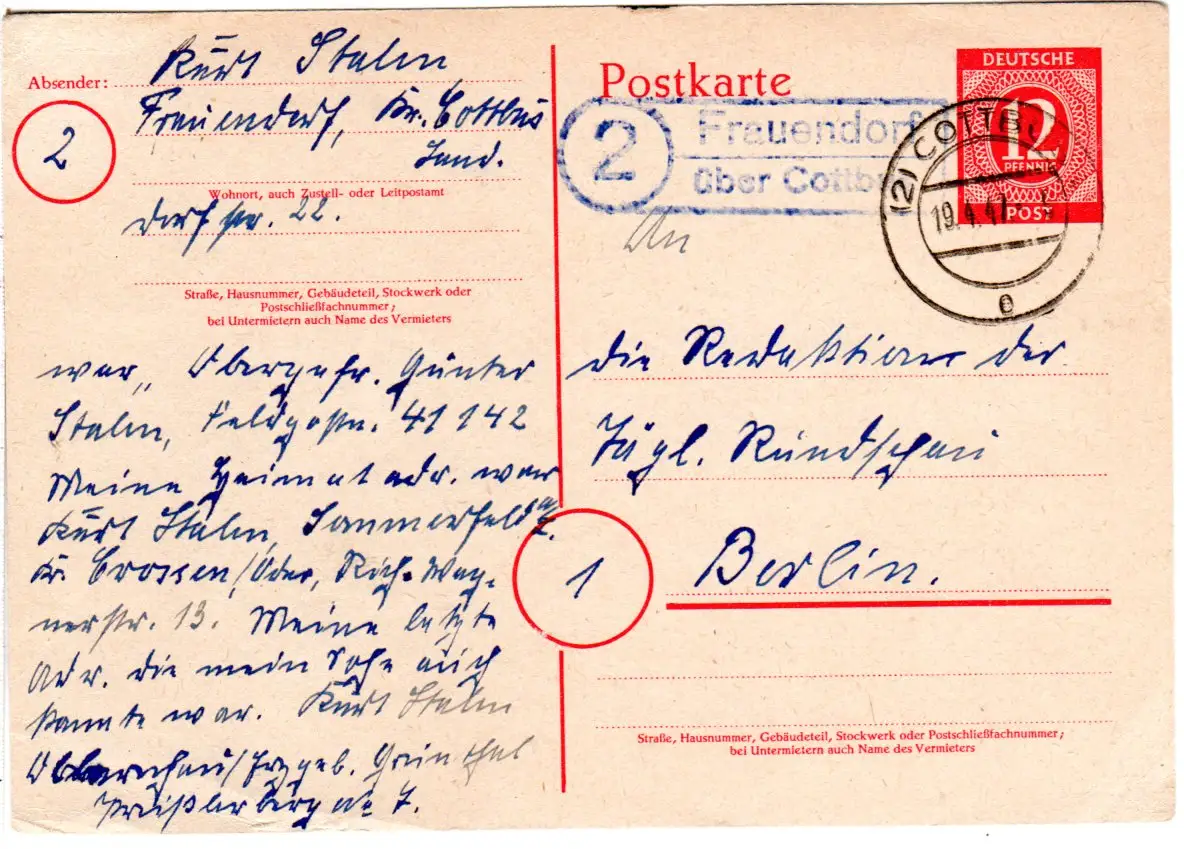 Absender: Kurt Stalm
Frauendorf, Kr. Cottbus
2
Land.
Wohnort, auch Zustell- oder Leitpostamt
Dorfstr. 22.
Straße, Hausnummer, Gebäudeteil, Stockwerk oder
Postschließfachnummer;
bei Untermietern auch Name des Vermieters
war, Obergefr. Günter
Stalm, Feldpostn. 41142
Meine Heimatadr. war
Kurt Stalm, Sommerfeld N/L.
Kr. Crossen/Oder, Rich. Wag-
nerstr. 13. Meine letzte
Adr. die mein Sohn auch
kannte war. Kurt Stalm
Olbernhau/Erzgeb. Grünthal
berg No 7.
Postkarte
DEUTSCHE
12
PFENNIG
POST
2
Frauendorf
über Cottbus
(2) COTTBUS
19.4.47
e
An
die Redaktion der
Tägl. Rundschau
1
Berlin.
Straße, Hausnummer, Gebäudeteil, Stockwerk oder Postschließfachnummer;
bei Untermietern auch Name des Vermieters